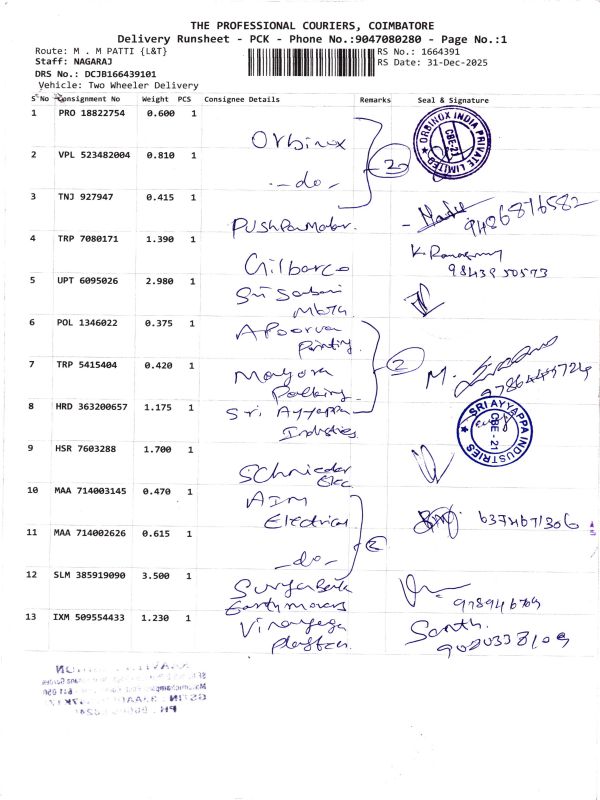 THE PROFESSIONAL COURIERS, COIMBATORE
Delivery Runsheet - PCK - Phone No.:9047080280 - Page No.:1
Route: M . M PATTI {L&T} RS No.: 1664391
Staff: NAGARAJ RS Date: 31-Dec-2025
DRS No.: DCJB166439101
Vehicle: Two Wheeler Delivery
S No Consignment No Weight PCS Consignee Details Remarks Seal & Signature
1 PRO 18822754 0.600 1 Orbinox
ORBINOX INDIA PRIVATE LIMITED CBE-21
2 VPL 523482004 0.810 1 -do-
3 TNJ 927947 0.415 1 Pushpa Motor
9486876582
4 TRP 7080171 1.390 1 Gilbarco
9843950573
5 UPT 6095026 2.980 1 Sri
6 POL 1346022 0.375 1 Apoorva
Printing
2
7 TRP 5415404 0.420 1 Mayora
M.
8 HRD 363200657 1.175 1 Sri Ayyappa
Industries
SRI AYYAPPA INDUSTRIES CBE - 21
9 HSR 7603288 1.700 1 Schnieder
Elec
10 MAA 714003145 0.470 1 AIM
Electrical
6374671306
11 MAA 714002626 0.615 1 -do-
2
12 SLM 385919090 3.500 1
Earthmovers
13 IXM 509554433 1.230 1 Vinayaga
Santh.